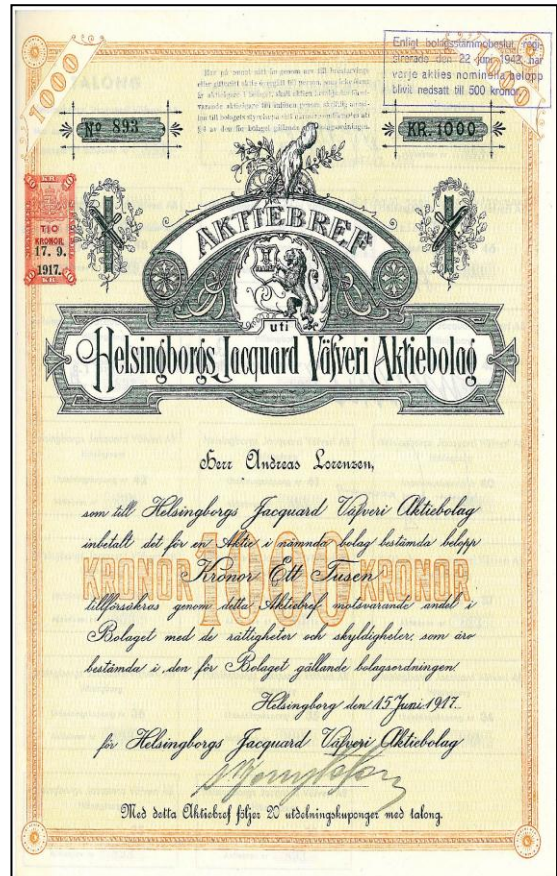 1000
1000
Enligt bolagsstämmobeslut, regi-
strerade den 22 juni 1943, har
varje akties nominella belopp
blivit nedsatt till 500 kronor.
TALONG
Nº 893
KR. 1000
KR.
10 10
TIO
KRONOR
17. 9.
1917.
10 10
KR.
AKTIEBREF
uti
Helsingborgs Jacquard Väfveri Aktiebolag
Herr Andreas Lorenzen,
som till Helsingborgs Jacquard Väfveri Aktiebolag
inbetalt det för en Aktie i nämnda bolag bestämda belopp
KRONOR 1000 KRONOR
Kronor Ett Tusen
tillförsäkras genom detta Aktiebref motsvarande andel i
Bolaget med de rättigheter och skyldigheter, som äro
bestämda i den för Bolaget gällande bolagsordningen.
Helsingborg den 15 Juni 1917.
för Helsingborgs Jacquard Väfveri Aktiebolag
Med detta Aktiebref följer 20 utdelningskuponger med talong.